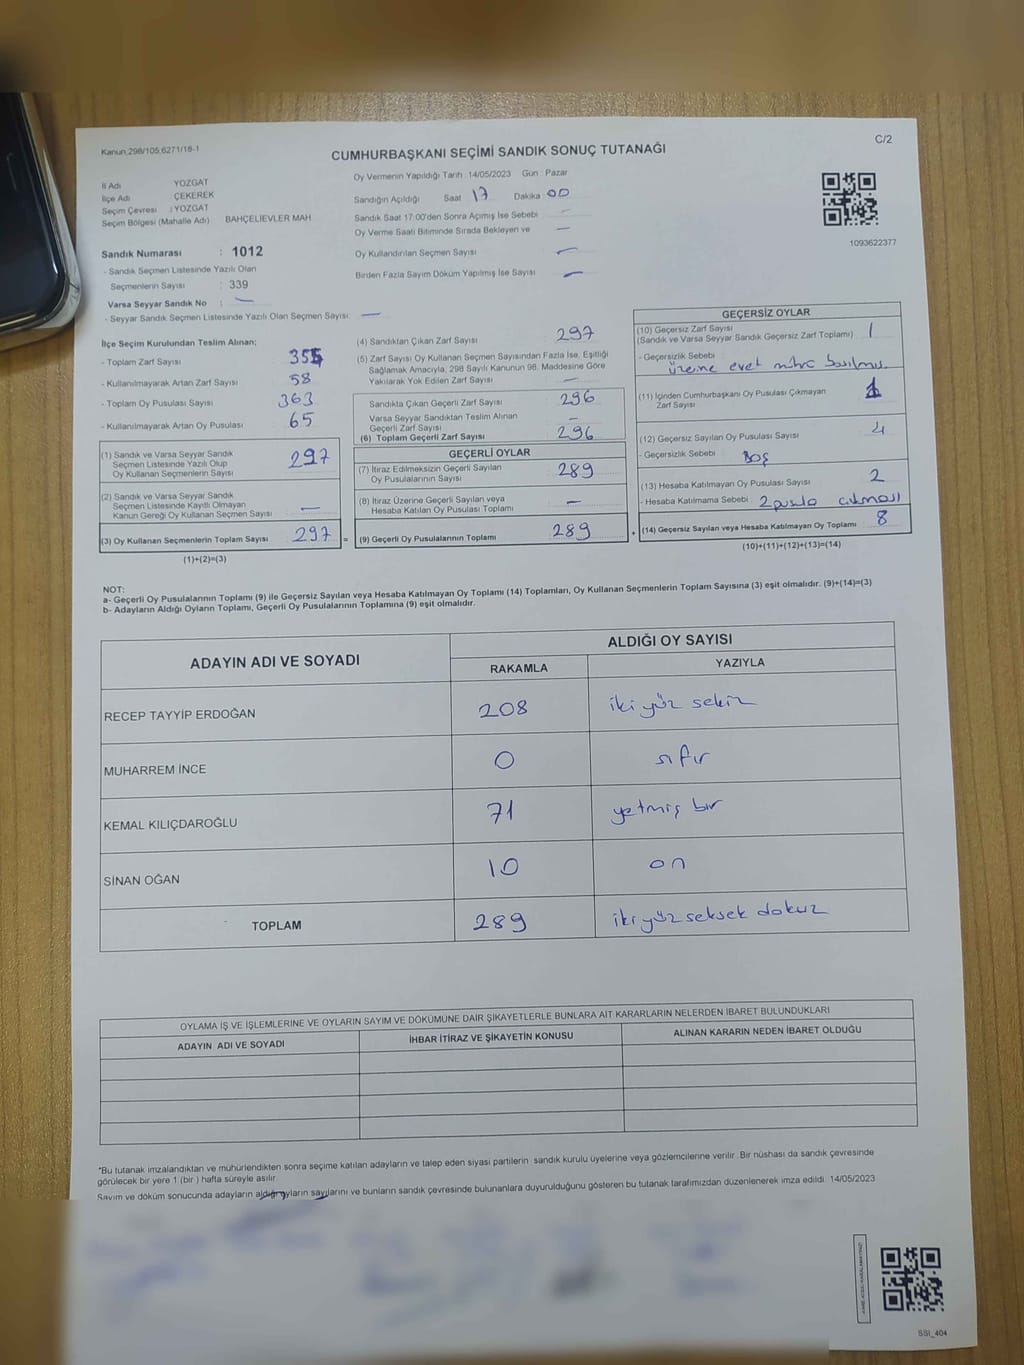 Kanun:298/105,6271/18-1
C/2
CUMHURBAŞKANI SEÇİMİ SANDIK SONUÇ TUTANAĞI
İli Adı YOZGAT
İlçe Adı ÇEKEREK
Seçim Çevresi : YOZGAT
Seçim Bölgesi (Mahalle Adı) BAHÇELİEVLER MAH
Sandık Numarası : 1012
- Sandık Seçmen Listesinde Yazılı Olan
Seçmenlerin Sayısı : 339
Varsa Seyyar Sandık No : —
- Seyyar Sandık Seçmen Listesinde Yazılı Olan Seçmen Sayısı: —
Oy Vermenin Yapıldığı Tarih : 14/05/2023 Gün : Pazar
Sandığın Açıldığı Saat 17 Dakika : 00
Sandık Saat 17:00'den Sonra Açımış İse Sebebi —
Oy Verme Saati Bitiminde Sırada Bekleyen ve —
Oy Kullandırılan Seçmen Sayısı —
Birden Fazla Sayım Döküm Yapılmış İse Sayısı —
1093622377
İlçe Seçim Kurulundan Teslim Alınan;
- Toplam Zarf Sayısı 355
- Kullanılmayarak Artan Zarf Sayısı 58
- Toplam Oy Pusulası Sayısı 363
- Kullanılmayarak Artan Oy Pusulası 65
(1) Sandık ve Varsa Seyyar Sandık
Seçmen Listesinde Yazılı Olup
Oy Kullanan Seçmenlerin Sayısı 297
(2) Sandık ve Varsa Seyyar Sandık
Seçmen Listesinde Kayıtlı Olmayan
Kanun Gereği Oy Kullanan Seçmen Sayısı —
(3) Oy Kullanan Seçmenlerin Toplam Sayısı 297 =
(1)+(2)=(3)
(4) Sandıktan Çıkan Zarf Sayısı 297
(5) Zarf Sayısı Oy Kullanan Seçmen Sayısından Fazla İse, Eşitliği
Sağlamak Amacıyla, 298 Sayılı Kanunun 98. Maddesine Göre
Yakılarak Yok Edilen Zarf Sayısı —
Sandıkta Çıkan Geçerli Zarf Sayısı 296
Varsa Seyyar Sandıktan Teslim Alınan
Geçerli Zarf Sayısı —
(6) Toplam Geçerli Zarf Sayısı 296
GEÇERLİ OYLAR
(7) İtiraz Edilmeksizin Geçerli Sayılan
Oy Pusulalarının Sayısı 289
(8) İtiraz Üzerine Geçerli Sayılan veya
Hesaba Katılan Oy Pusulası Toplamı —
(9) Geçerli Oy Pusulalarının Toplamı 289 +
GEÇERSİZ OYLAR
(10) Geçersiz Zarf Sayısı
(Sandık ve Varsa Seyyar Sandık Geçersiz Zarf Toplamı) 1
- Geçersizlik Sebebi
üzerine evet mührü basılmış.
(11) İçinden Cumhurbaşkanı Oy Pusulası Çıkmayan
Zarf Sayısı 1
(12) Geçersiz Sayılan Oy Pusulası Sayısı 4
- Geçersizlik Sebebi Boş
(13) Hesaba Katılmayan Oy Pusulası Sayısı 2
- Hesaba Katılmama Sebebi : 2 pusula çıkması
(14) Geçersiz Sayılan veya Hesaba Katılmayan Oy Toplamı 8
(10)+(11)+(12)+(13)=(14)
NOT:
a- Geçerli Oy Pusulalarının Toplamı (9) ile Geçersiz Sayılan veya Hesaba Katılmayan Oy Toplamı (14) Toplamları, Oy Kullanan Seçmenlerin Toplam Sayısına (3) eşit olmalıdır. (9)+(14)=(3)
b- Adayların Aldığı Oyların Toplamı, Geçerli Oy Pusulalarının Toplamına (9) eşit olmalıdır.
ADAYIN ADI VE SOYADI ALDIĞI OY SAYISI
RAKAMLA YAZIYLA
RECEP TAYYİP ERDOĞAN 208 iki yüz sekiz
MUHARREM İNCE 0 sıfır
KEMAL KILIÇDAROĞLU 71 yetmiş bir
SİNAN OĞAN 10 on
TOPLAM 289 iki yüz seksek dokuz
OYLAMA İŞ VE İŞLEMLERİNE VE OYLARIN SAYIM VE DÖKÜMÜNE DAİR ŞİKAYETLERLE BUNLARA AİT KARARLARIN NELERDEN İBARET BULUNDUKLARI
ADAYIN ADI VE SOYADI İHBAR İTİRAZ VE ŞİKAYETİN KONUSU ALINAN KARARIN NEDEN İBARET OLDUĞU
*Bu tutanak imzalandıktan ve mühürlendikten sonra seçime katılan adayların ve talep eden siyasi partilerin sandık kurulu üyelerine veya gözlemcilerine verilir. Bir nüshası da sandık çevresinde
görülecek bir yere 1 (bir ) hafta süreyle asılır.
Sayım ve döküm sonucunda adayların aldığı oyların sayılarını ve bunların sandık çevresinde bulunanlara duyurulduğunu gösteren bu tutanak tarafımızdan düzenlenerek imza edildi. 14/05/2023
SSI_404